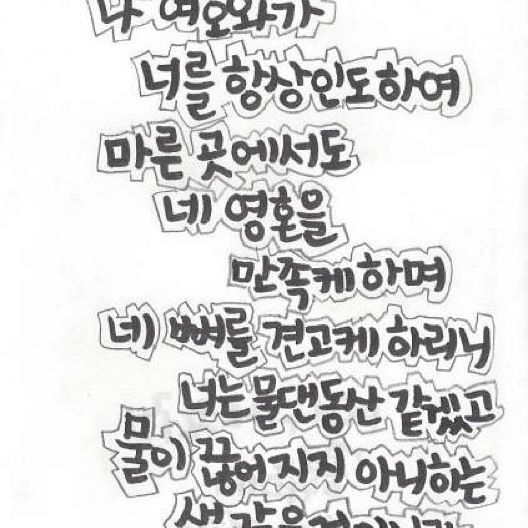 나 여호와가
너를 항상 인도하여
마른 곳에서도
네 영혼을
만족케 하며
네 뼈를 견고케 하리니
너는 물댄 동산 같겠고
물이 끊어지지 아니하는
샘 같을